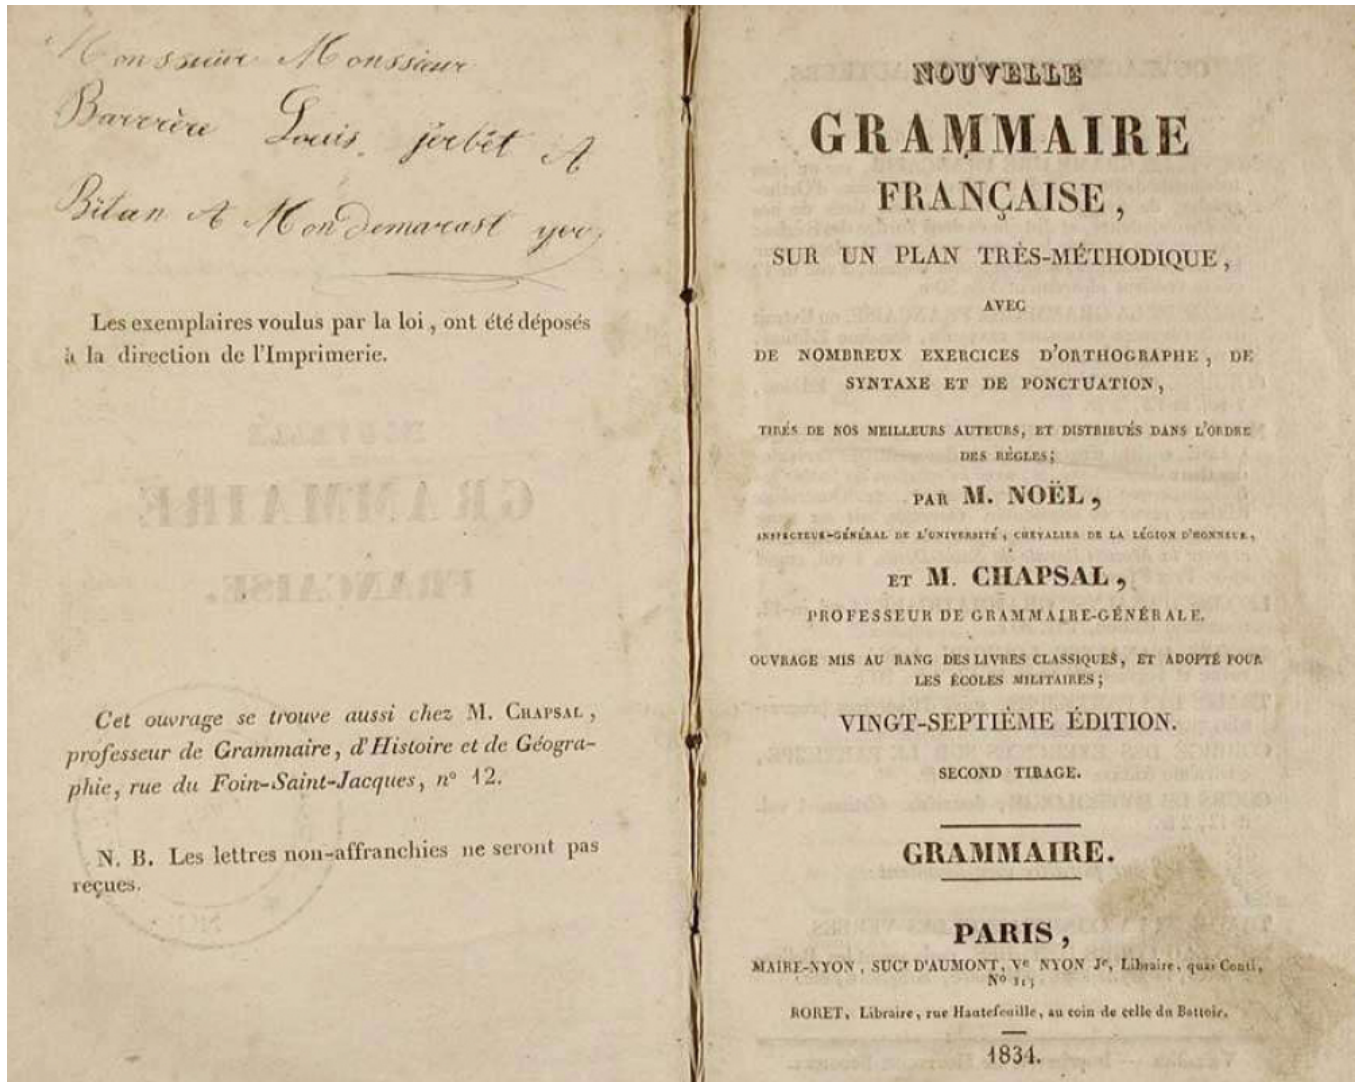 Monssieur Monssieur
Barrère Louis. jerbêt A
Bilan A Mondemarcast
Les exemplaires voulus par la loi, ont été déposés
à la direction de l'Imprimerie.
Cet ouvrage se trouve aussi chez M. CHAPSAL,
professeur de Grammaire, d'Histoire et de Géogra-
phie, rue du Foin-Saint-Jacques, n° 12.
N. B. Les lettres non-affranchies ne seront pas
reçues.
NOUVELLE
GRAMMAIRE
FRANÇAISE,
SUR UN PLAN TRÈS-MÉTHODIQUE,
AVEC
DE NOMBREUX EXERCICES D'ORTHOGRAPHE, DE
SYNTAXE ET DE PONCTUATION,
TIRÉS DE NOS MEILLEURS AUTEURS, ET DISTRIBUÉS DANS L'ORDRE
DES RÈGLES;
PAR M. NOËL,
INSPECTEUR-GÉNÉRAL DE L'UNIVERSITÉ, CHEVALIER DE LA LÉGION D'HONNEUR,
ET M. CHAPSAL,
PROFESSEUR DE GRAMMAIRE-GÉNÉRALE.
OUVRAGE MIS AU RANG DES LIVRES CLASSIQUES, ET ADOPTÉ POUR
LES ÉCOLES MILITAIRES;
VINGT-SEPTIÈME ÉDITION.
SECOND TIRAGE.
GRAMMAIRE.
PARIS,
MAIRE-NYON, SUCr D'AUMONT, Ve NYON Je, Libraire, quai Conti,
RORET, Libraire, rue Hautefeuille, au coin de celle du Battoir.
1834.